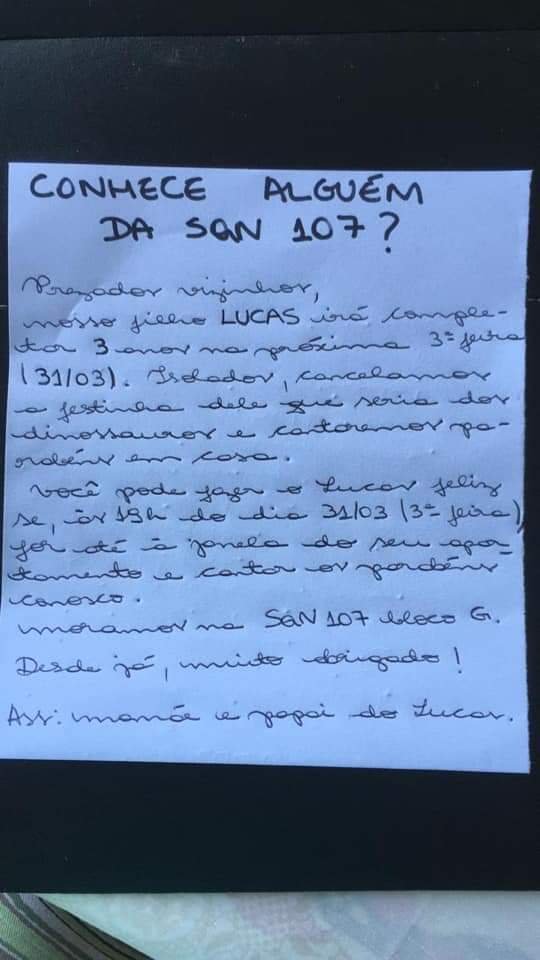 CONHECE ALGUÉM
DA SQN 107?
Prezados vizinhos,
nosso filho LUCAS irá comple-
tar 3 anos na próxima 3ª feira
(31/03). Isolados, cancelamos
a festinha dele que seria dos
dinossauros e cantaremos pa-
rabéns em casa.
Você pode fazer o Lucas feliz
se, às 19h do dia 31/03 (3ª feira),
for até à janela do seu apar-
tamento e cantar os parabéns
conosco.
Moramos na SQN 107 bloco G.
Desde já, muito obrigado!
Ass: mamãe e papai do Lucas.